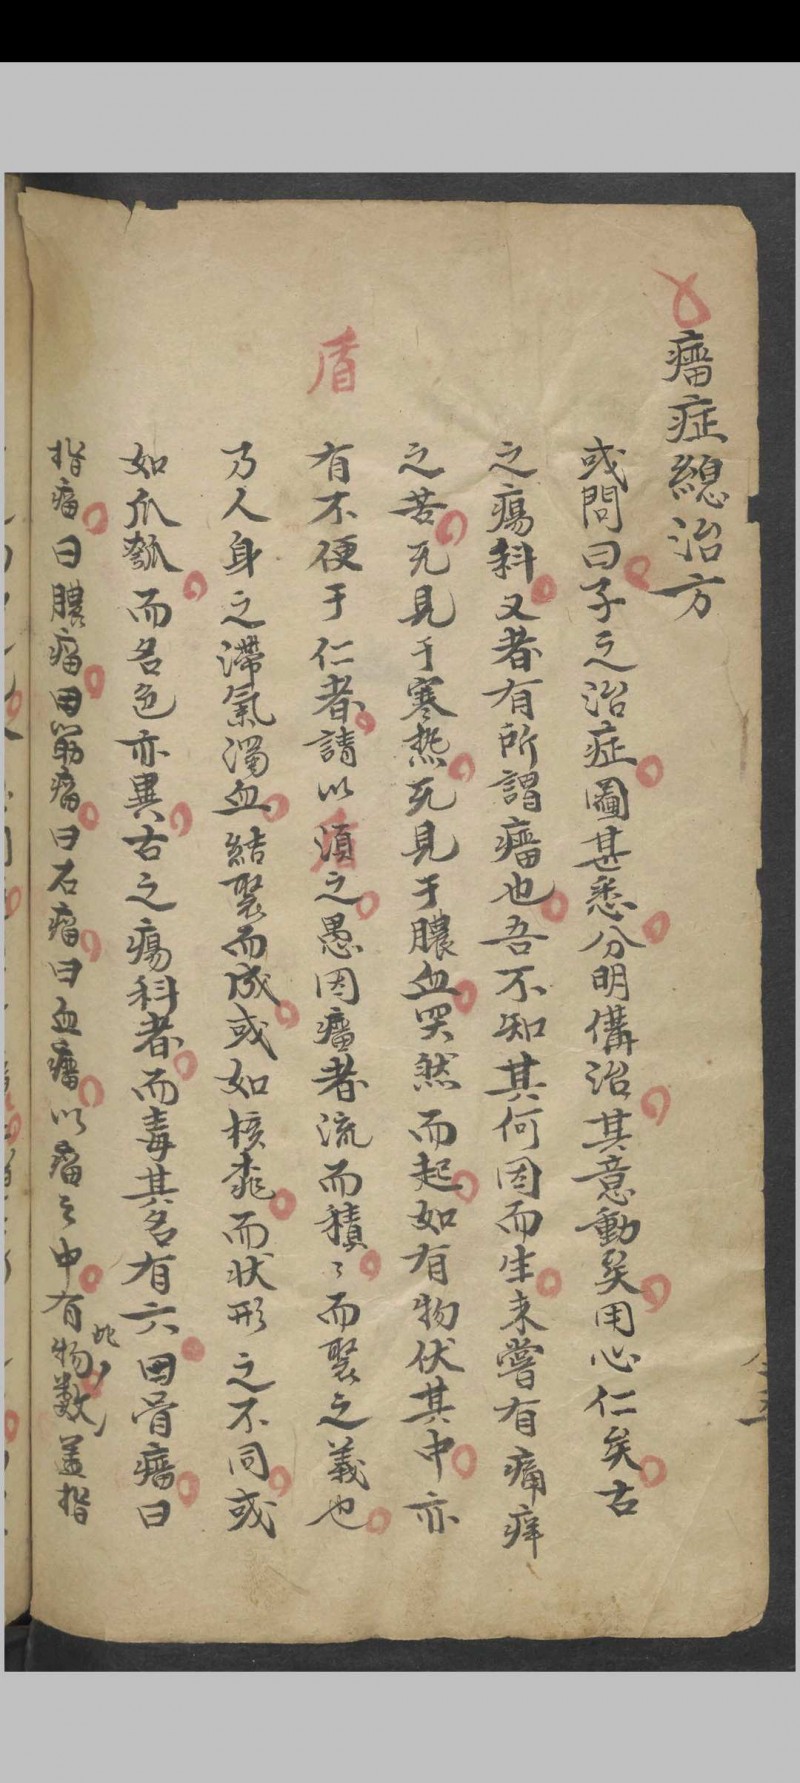 瘤症總治方
或問曰子之治症圖甚悉分明備治其意動矣用心仁矣古
之瘍科又者有所謂瘤也吾不知其何因而生未嘗有痛痒
之苦旡見于寒熱旡見于膿血突然而起如有物伏其中亦
盾
有不便于仁者請以湏之愚因瘤者流而積〻而聚之義也
乃人身之滯氣濁血結聚而成或如核桃而状形之不同或
如爪瓠而名色亦異古之瘍科者而毒其名有六曰骨瘤曰
指瘤曰膿瘤曰筋瘤曰石瘤曰血瘤以瘤之中有物此数盖指